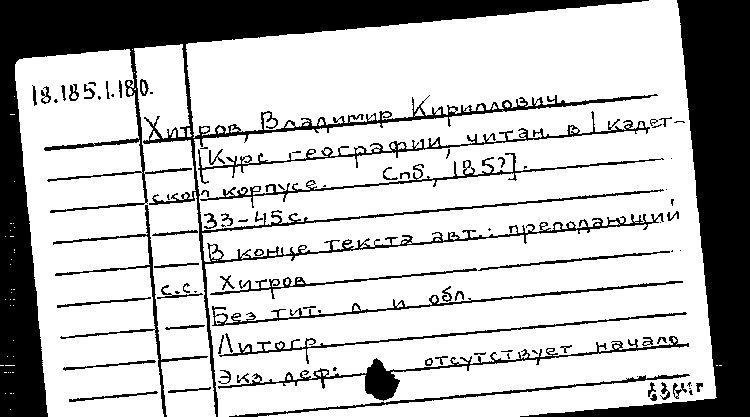 18.185.1.180.
Хитров, Владимир Кириллович.
[Курс географии, читан. в I кадет-
ском корпусе. Спб., 185?].
33-45 с.
В конце текста авт.: преподающий
с.с. Хитров
Без тит. л. и обл.
Литогр.
Экз. деф: отсутствует начало